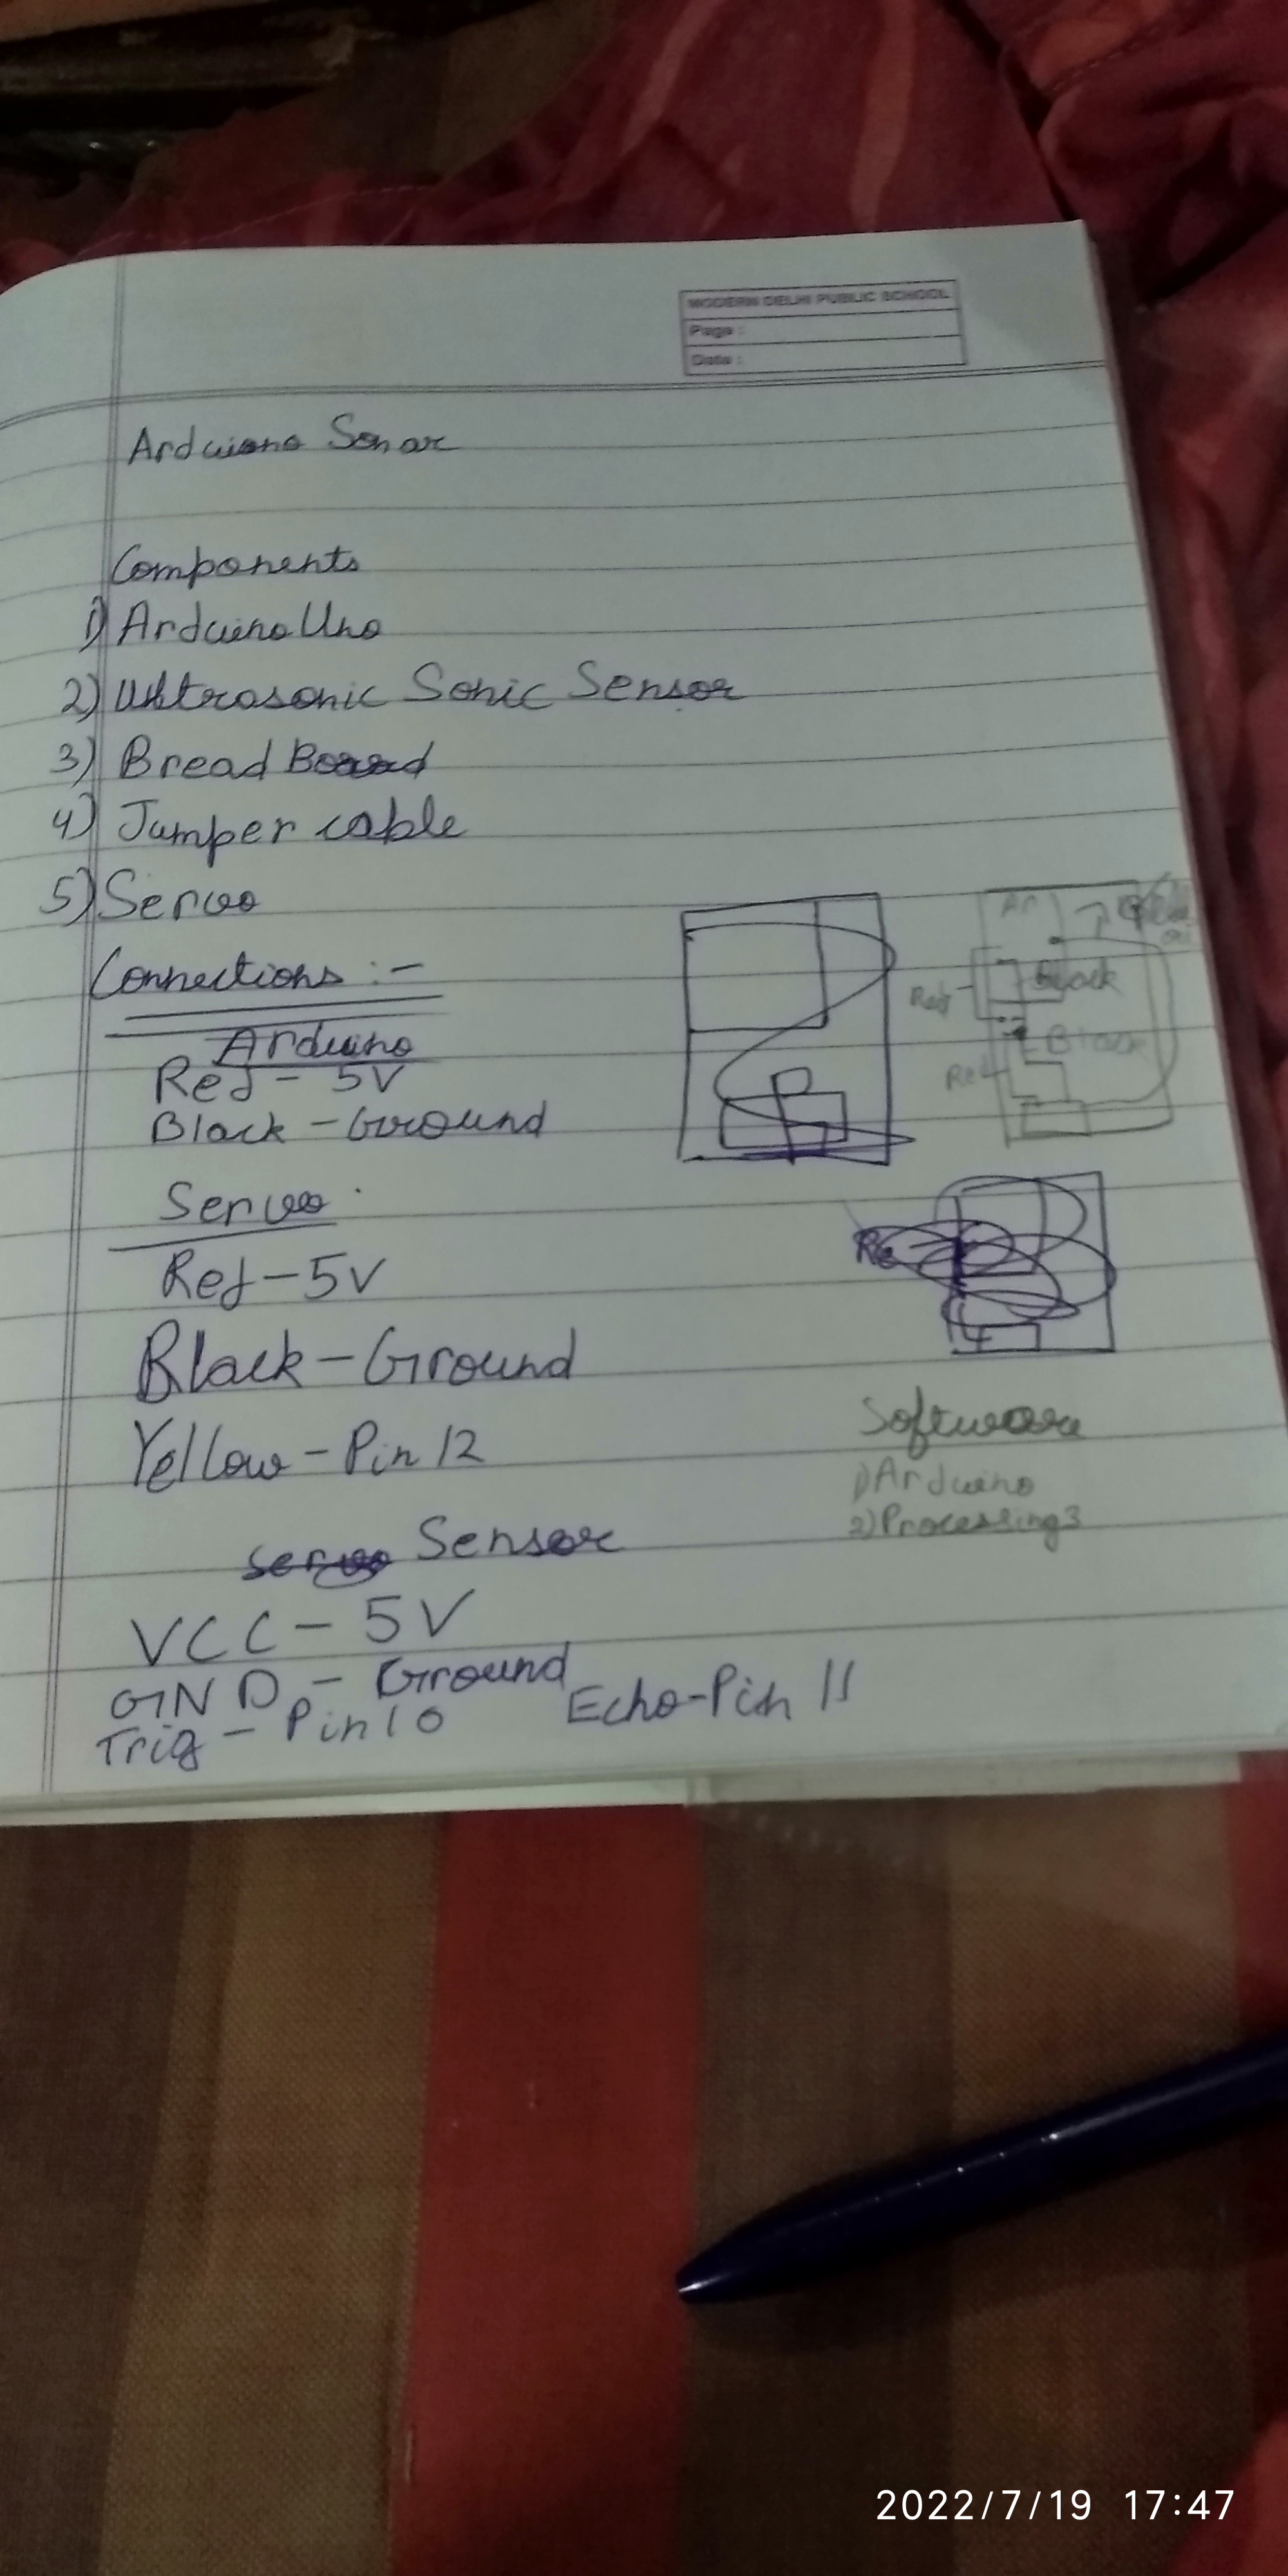 MODERN DELHI PUBLIC SCHOOL
Page :
Date :
Arduiono Sonar
Components
1) Arduino Uno
2) Ultrasonic Sonic Sensor
3) Bread Board
4) Jumper cable
5) Servo
Connections :-
Arduino
Red - 5V
Black - Ground
Servo
Red - 5V
Black - Ground
Yellow - Pin 12
Servo Sensor
VCC - 5V
GND - Ground
Trig - Pin 10 Echo-Pin 11
Ar
Red
Black
Black
Red
Re
Software
1) Arduino
2) Processing3
2022/7/19 17:47